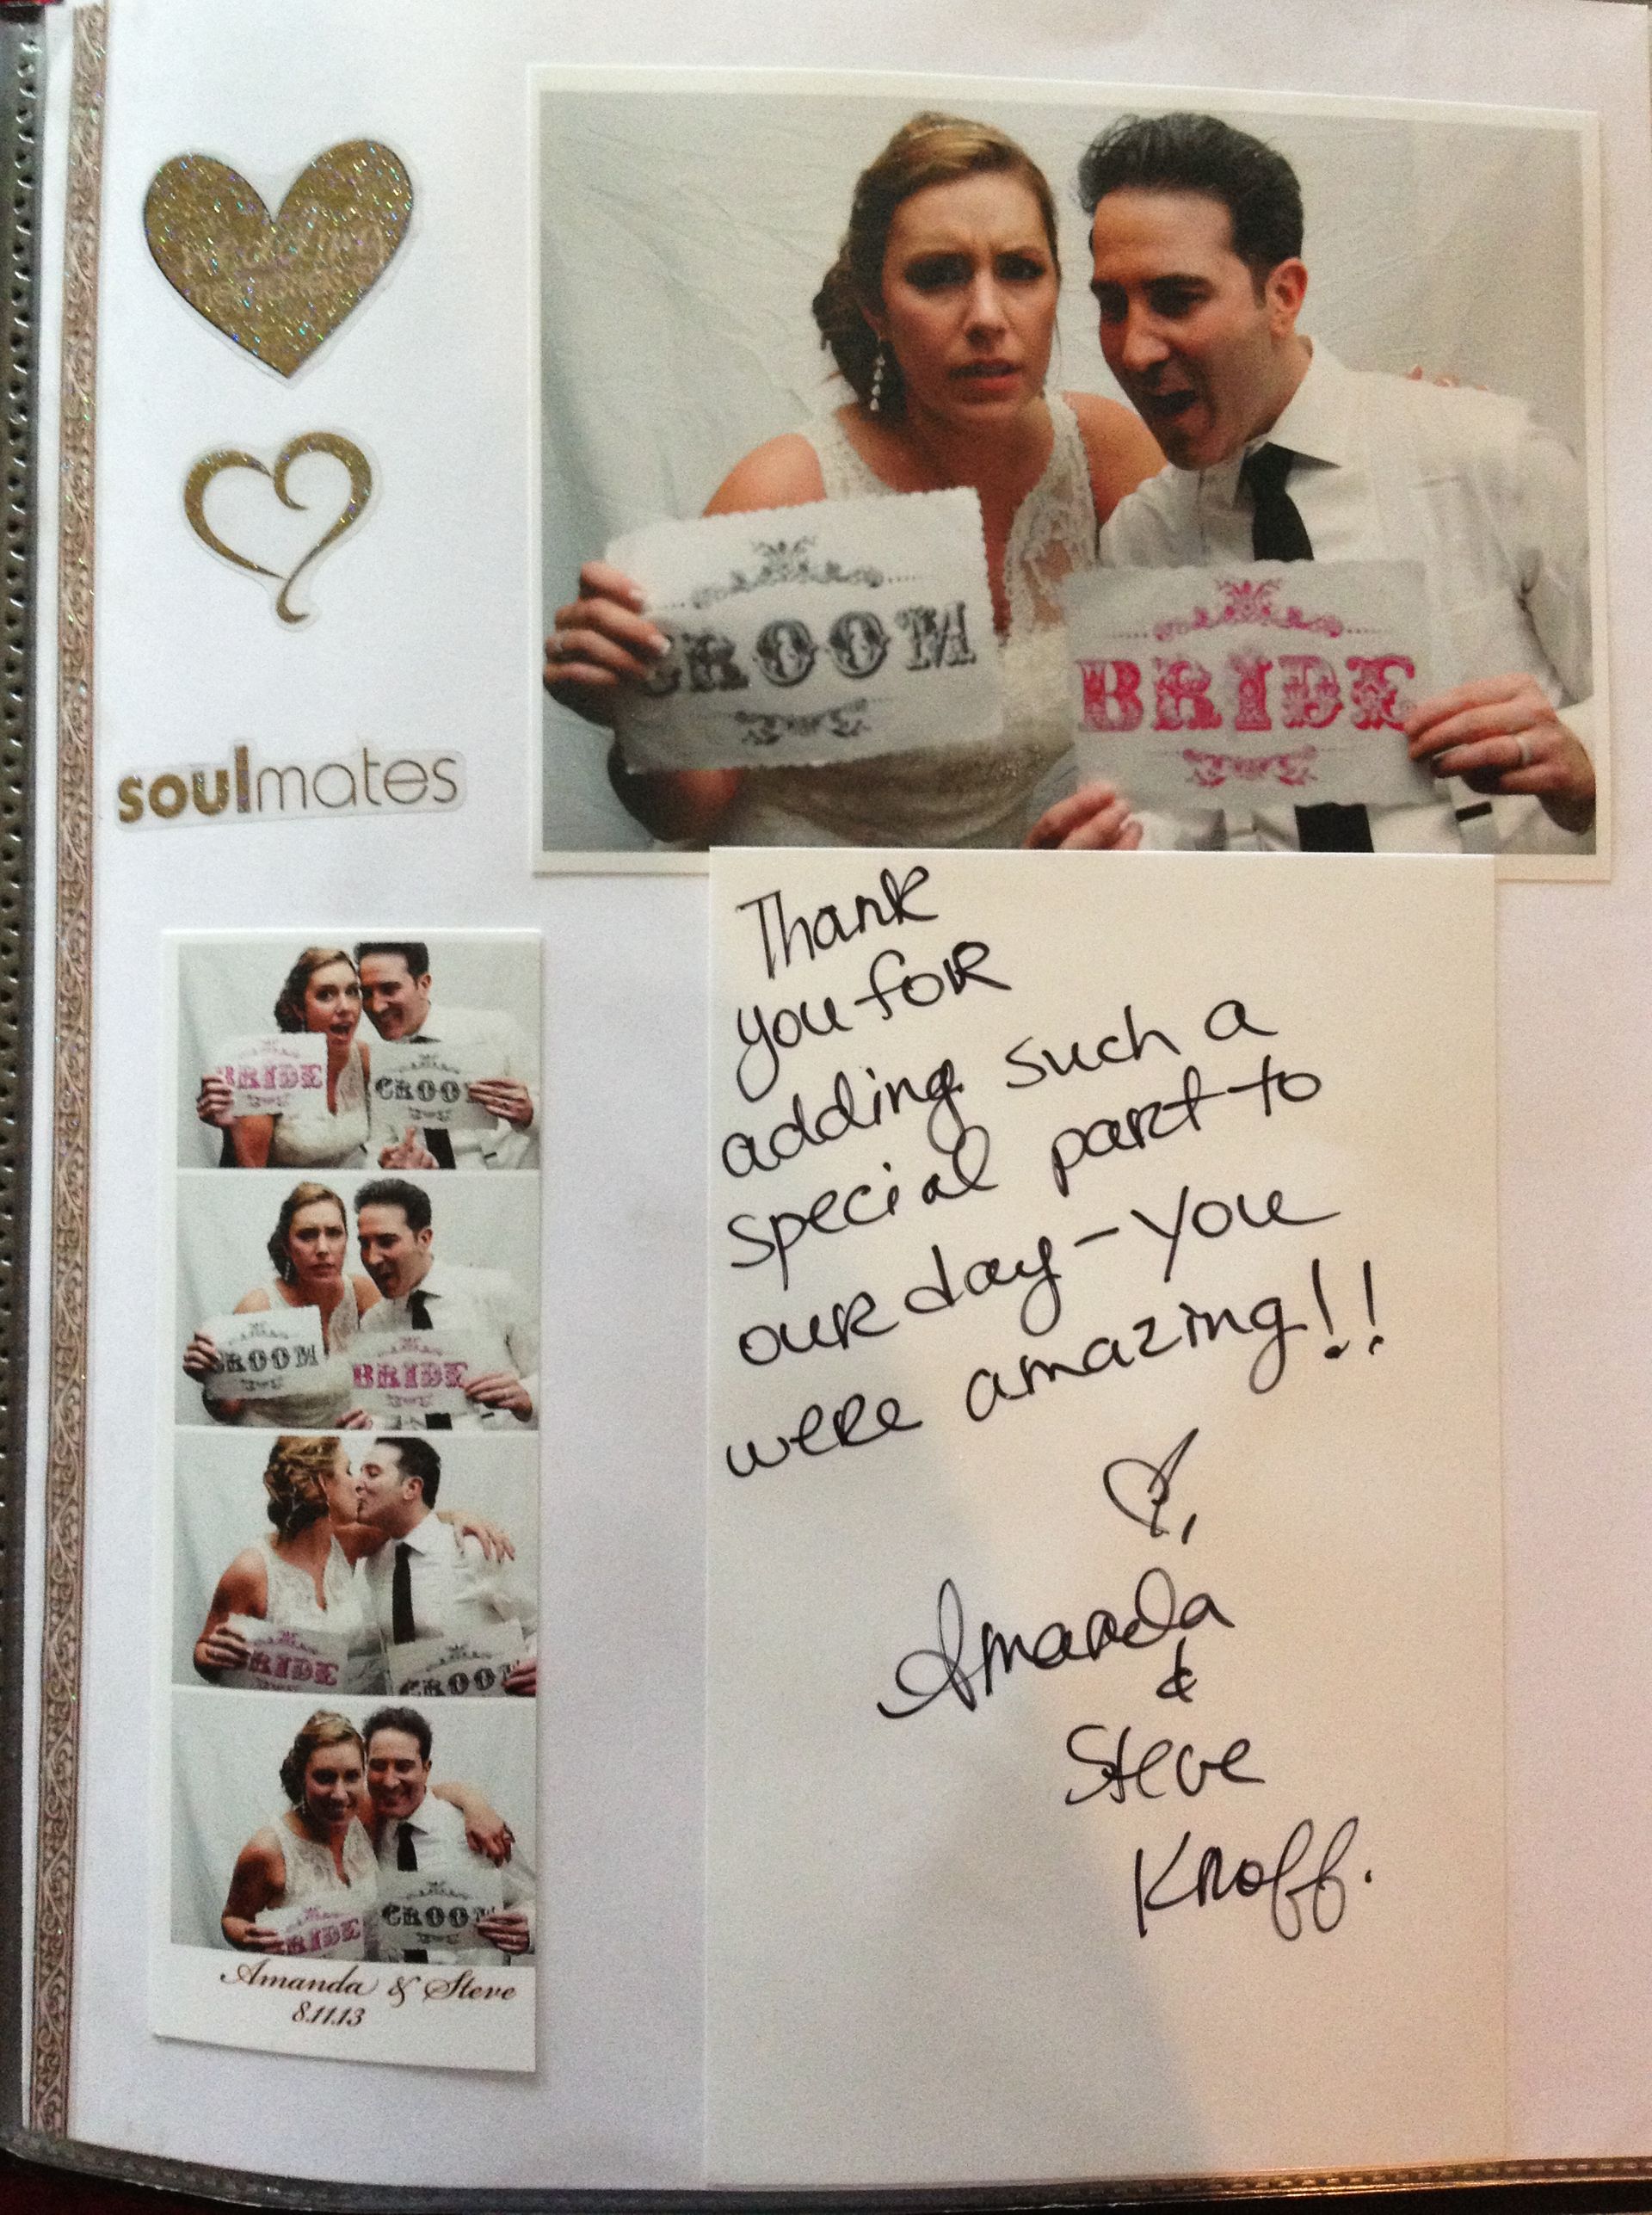 GROOM
BRIDE
soulmates
BRIDE
GROO
GROOM
BRIDE
BRIDE
GROOM
BRIDE
GROOM
Amanda & Steve
8.11.13
Thank
you for
adding such a
special part to
our day - you
were amazing!!
♡,
Amanda
&
Steve
Knoff.